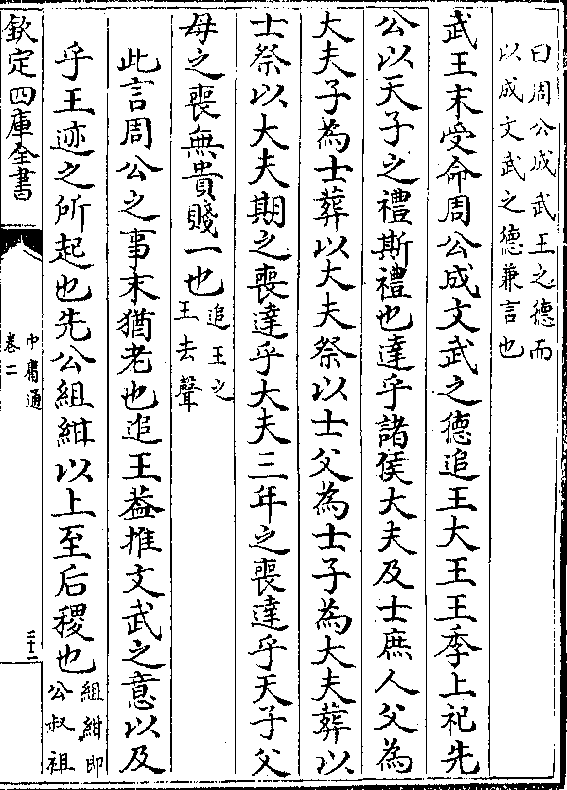 曰周公成武王之德而
以成文武之德兼言也
武王末受命周公成文武之德追王大王王季上祀先
公以天子之禮斯禮也達乎諸侯大夫及士庶人父為
大夫子為士葬以大夫祭以士父為士子為大夫葬以
士祭以大夫期之喪達乎大夫三年之喪達乎天子父
母之喪無貴賤一也追王之
王去聲
此言周公之事末猶老也追王蓋推文武之意以及
乎王迹之所起也先公組紺以上至后稷也組紺即
公叔祖
欽定四庫全書
中庸通
卷二
三十二